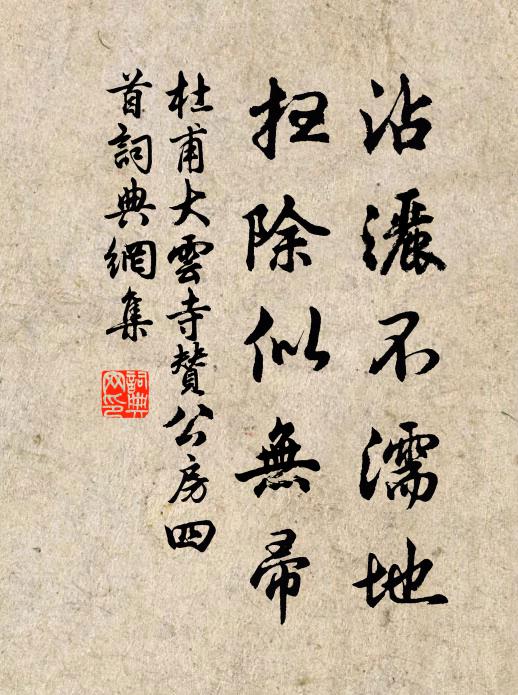 沾灑不濡地
掃除似無帚
杜甫大雲寺贊公房四
首詞典網集
詞典
网印